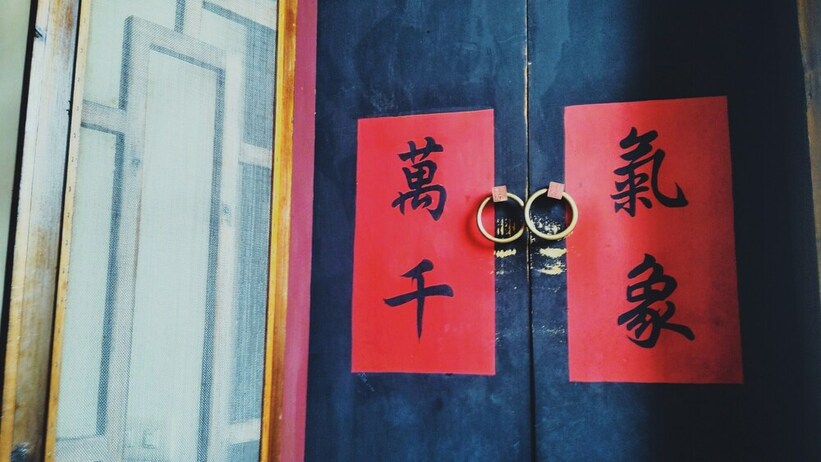 氣象
萬千